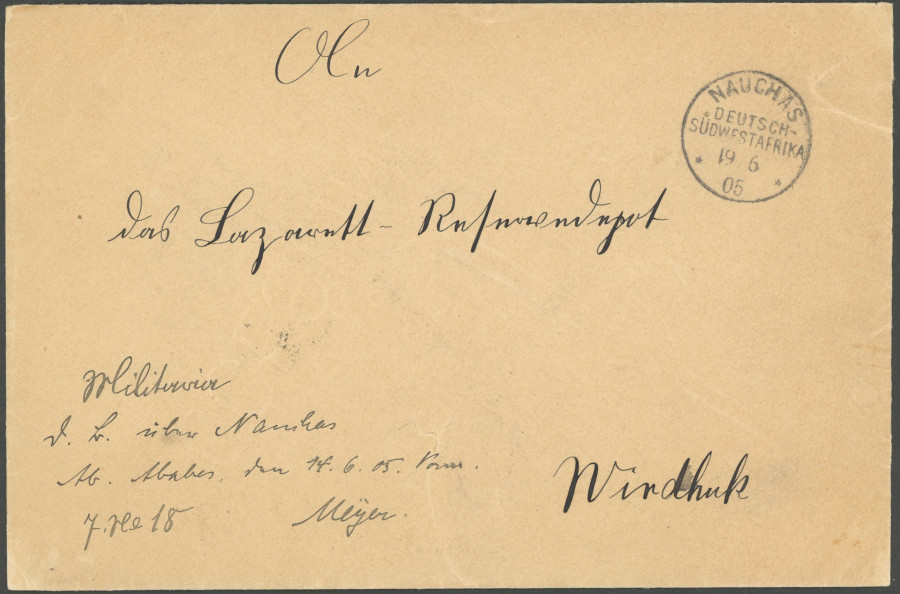 An
NAUCHAS
DEUTSCH-
SÜDWESTAFRIKA
* 19 6 *
05
das Lazarett-Reservedepot
Militaria
über Nauchas
Ab. Ababes, den 14.6.05. Vorm.
Meyer.
Windhuk